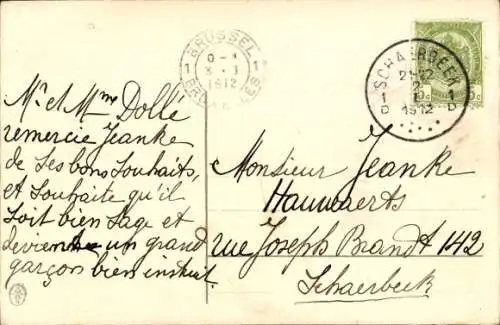 Mr et Mme Dollé
remercie Jeanke
de ses bons souhaits,
et souhaite qu'il
soit bien sage et
devienne un grand
garçon bien instruit.
BRUSSEL
1 1
1912
BRUXELLES
SCHAERBEEK
1 1
D D
1912
Monsieur Jeanke
Hauwaerts
rue Joseph Brandt 142
Schaerbeek